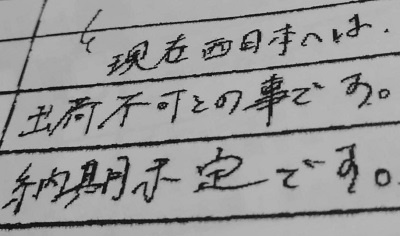 現在西日本へは、
出荷不可との事です。
納期未定です。